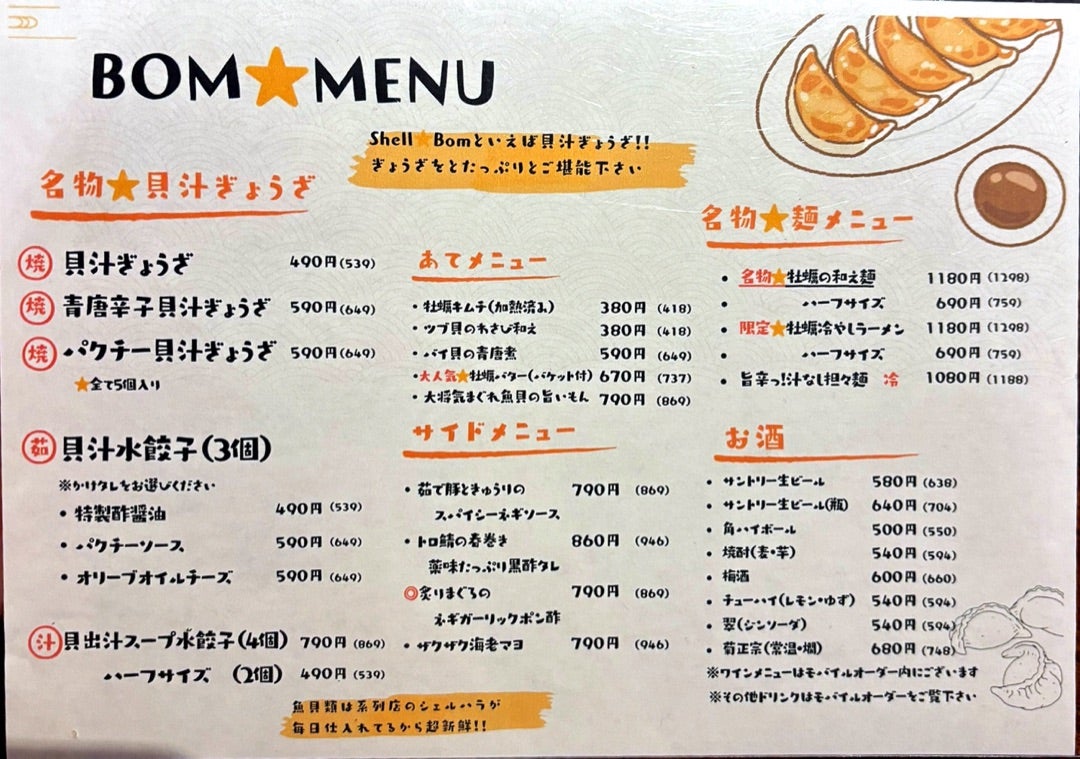 BOM★MENU
Shell★Bomといえば貝汁ぎょうざ!!
ぎょうざをとたっぷりとご堪能下さい
名物★貝汁ぎょうざ
焼 貝汁ぎょうざ 490円(539)
焼 青唐辛子貝汁ぎょうざ 590円(649)
焼 パクチー貝汁ぎょうざ 590円(649)
★全て5個入り
茹 貝汁水餃子(3個)
※かけタレをお選びください
・特製酢醤油 490円(539)
・パクチーソース 590円(649)
・オリーブオイルチーズ 590円(649)
汁 貝出汁スープ水餃子(4個) 790円(869)
ハーフサイズ (2個) 490円(539)
あてメニュー
・牡蠣キムチ(加熱済み) 380円(418)
・ツブ貝のわさび和え 380円(418)
・バイ貝の青唐煮 590円(649)
・大人気★牡蠣バター(バケット付) 670円(737)
・大将気まぐれ魚貝の旨いもん 790円(869)
サイドメニュー
・茹で豚ときゅうりの 790円(869)
スパイシーネギソース
・トロ鯖の春巻き 860円(946)
薬味たっぷり黒酢タレ
◎炙りまぐろの 790円(869)
ネギガーリックポン酢
・ザクザク海老マヨ 790円(946)
魚貝類は系列店のシェルハラが
毎日仕入れてるから超新鮮!!
名物★麺メニュー
・名物★牡蠣の和え麺 1180円(1298)
・ハーフサイズ 690円(759)
・限定★牡蠣冷やしラーメン 1180円(1298)
・ハーフサイズ 690円(759)
・旨辛っ!汁なし担々麺 冷 1080円(1188)
お酒
・サントリー生ビール 580円(638)
・サントリー生ビール(瓶) 640円(704)
・角ハイボール 500円(550)
・焼酎(麦・芋) 540円(594)
・梅酒 600円(660)
・チューハイ(レモン・ゆず) 540円(594)
・翠(ジンソーダ) 540円(594)
・菊正宗(常温・燗) 680円(748)
※ワインメニューはモバイルオーダー内にございます
※その他ドリンクはモバイルオーダーをご覧下さい